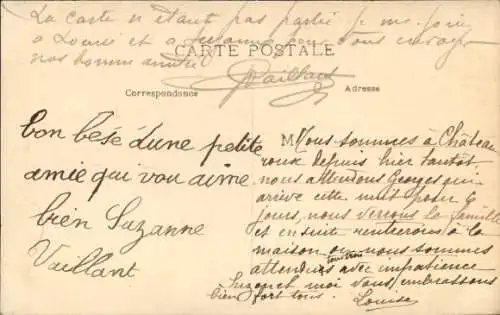 La carte n'étant pas partie je me joins
à Louise et a Suzanne pour vous envoyer
nos bonne amitié
CARTE POSTALE
Vaillant
Correspondance
Adresse
bon besé dune petite
amie qui vou aime
bien Suzanne
Vaillant
M
Nous sommes à Château
roux depuis hier tantôt
nous attendons Georges qui
arrive cette nuit pour 6
jours, nous verrons la famille
et ensuit rentrerons à la
maison ou nous sommes
attendus tous trois avec impatience
Suzon et moi vous embrassons
bien fort tous. Louise